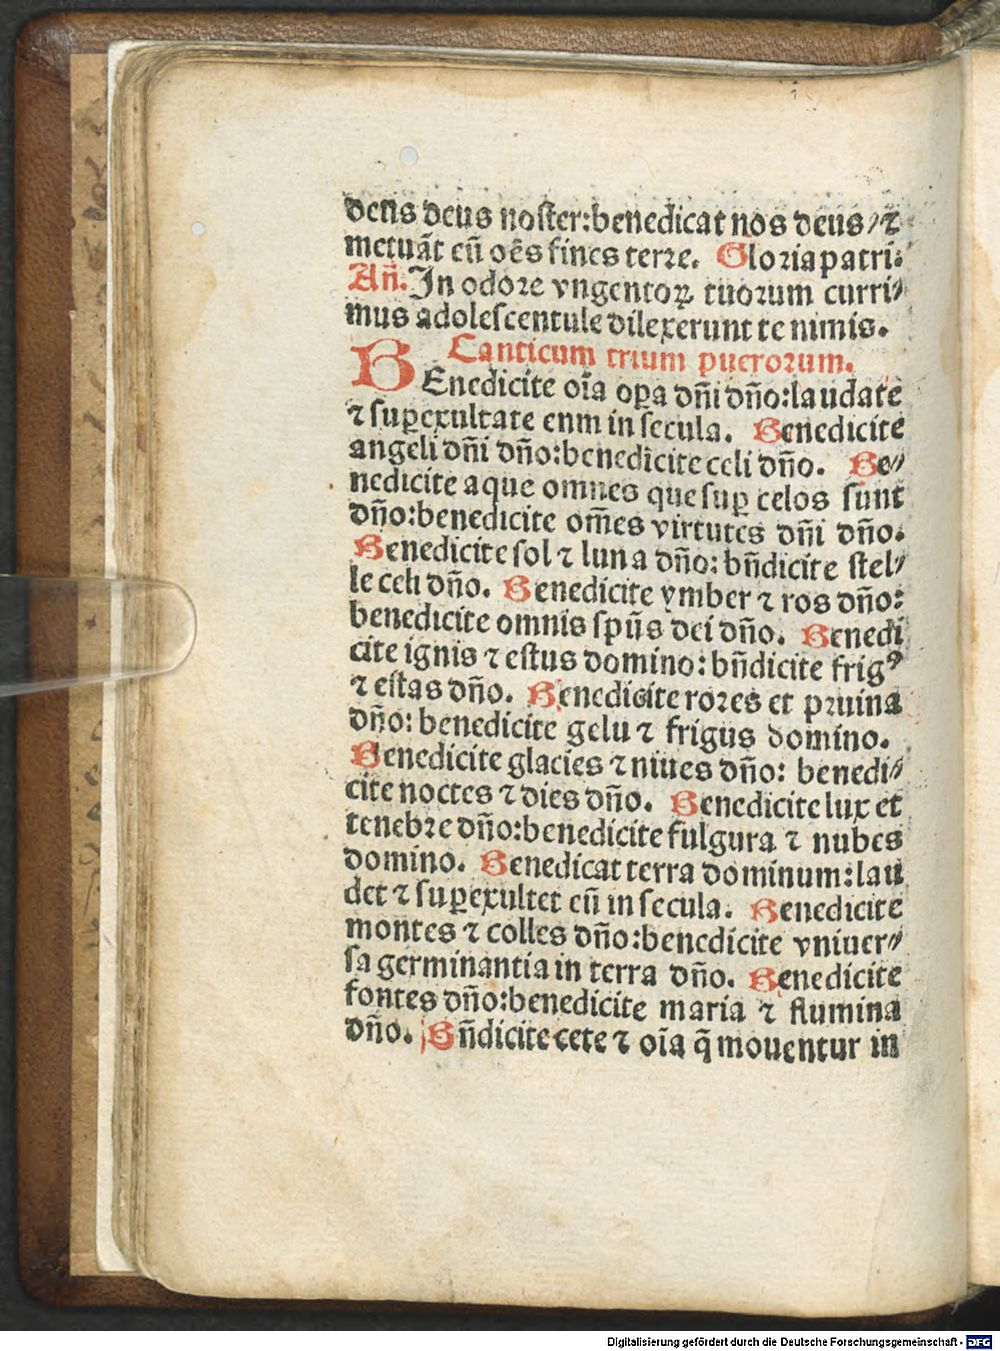 deus deus noster:benedicat nos deus⸗⁊
metuãt eũ oẽs fines terre. Gloria patri:
Añ. In odore vngentoꝝ tuorum curri⸗
mus adolescentule dilexerunt te nimis.
Canticum trium puerorum.
BEnedicite oĩa oꝑa dñi dño:laudate
⁊ suꝑexultate eum in secula. Benedicite
angeli dñi dño:benedicite celi dño. Be⸗
nedicite aque omnes que suꝑ celos sunt
dño:benedicite om̃es virtutes dñi dño.
Benedicite sol ⁊ luna dño: bñdicite stel⸗
le celi dño. Benedicite ymber ⁊ ros dño:
benedicite omnis spũs dei dño. Benedi
cite ignis ⁊ estus domino: bñdicite frigꝰ
⁊ estas dño. Benedicite rores et pruina
dño: benedicite gelu ⁊ frigus domino.
Benedicite glacies ⁊ niues dño: benedi⸗
cite noctes ⁊ dies dño. Benedicite lux et
tenebre dño:benedicite fulgura ⁊ nubes
domino. Benedicat terra dominum:lau
det ⁊ suꝑexultet eũ in secula. Benedicite
montes ⁊ colles dño:benedicite vniuer⸗
sa germinantia in terra dño. Benedicite
fontes dño:benedicite maria ⁊ flumina
dño. Bñdicite cete ⁊ oĩa q̃ mouentur in
Digitalisierung gefördert durch die Deutsche Forschungsgemeinschaft - DFG